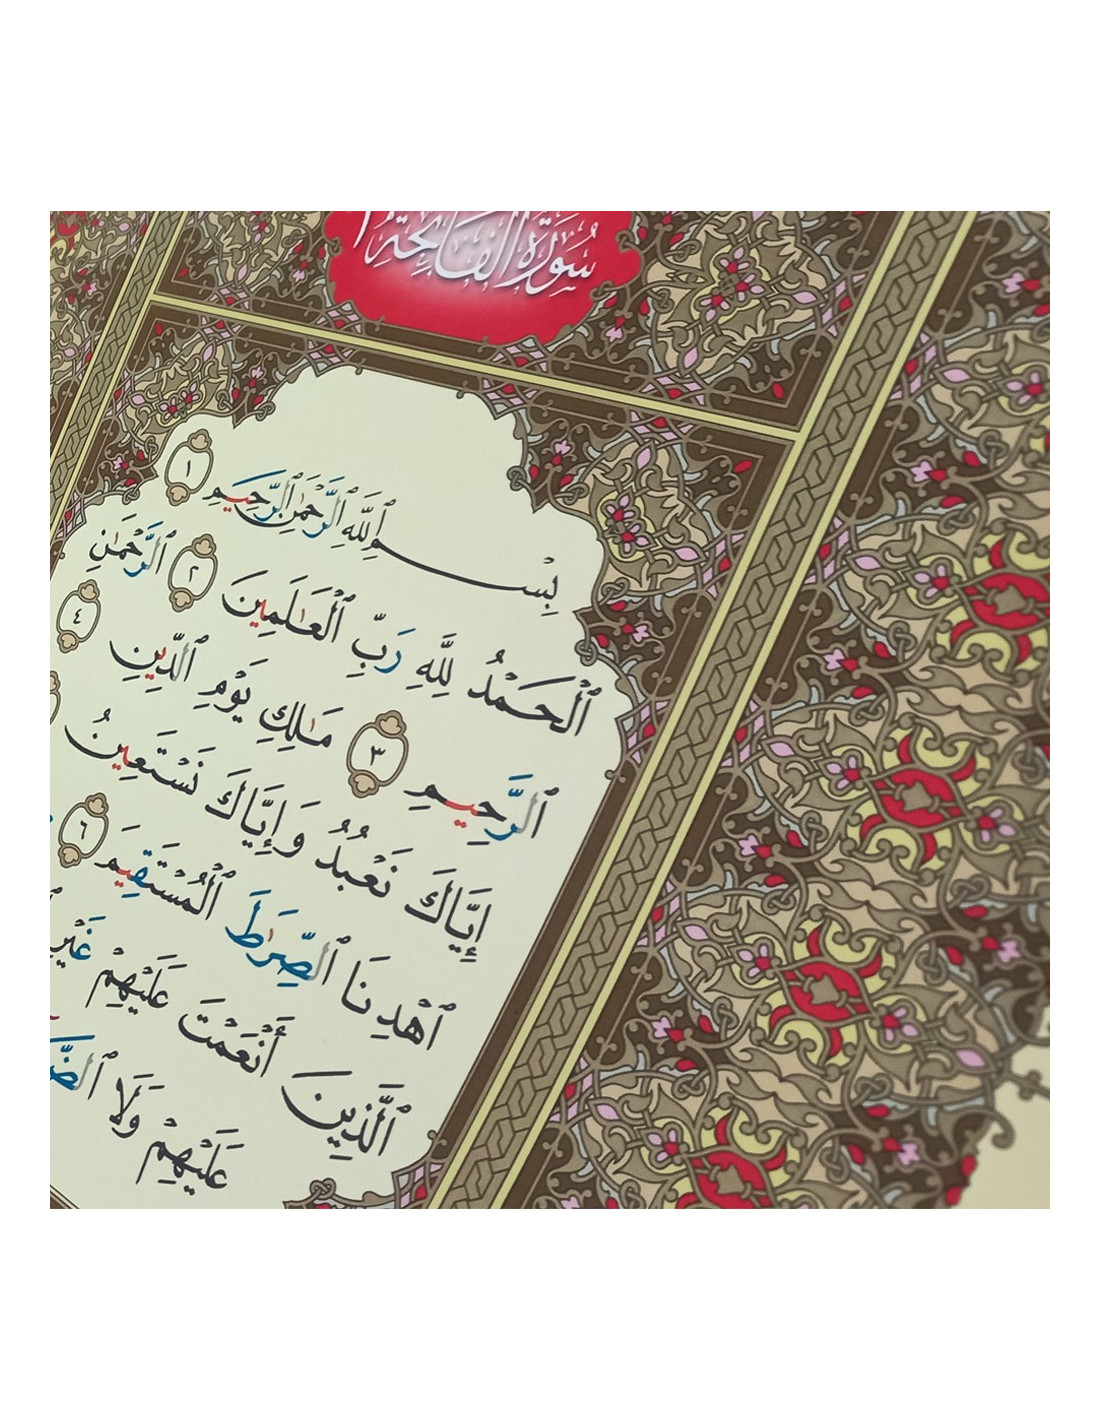 سُورَةُ الْفَاتِحَةِ
بِسْمِ ٱللَّهِ ٱلرَّحْمَٰنِ ٱلرَّحِيمِ ١
ٱلْحَمْدُ لِلَّهِ رَبِّ ٱلْعَٰلَمِينَ ٢ ٱلرَّحْمَٰنِ
ٱلرَّحِيمِ ٣ مَٰلِكِ يَوْمِ ٱلدِّينِ ٤
إِيَّاكَ نَعْبُدُ وَإِيَّاكَ نَسْتَعِينُ
ٱهْدِنَا ٱلصِّرَٰطَ ٱلْمُسْتَقِيمَ ٦
ٱلَّذِينَ أَنْعَمْتَ عَلَيْهِمْ غَيْرِ
عَلَيْهِمْ وَلَا